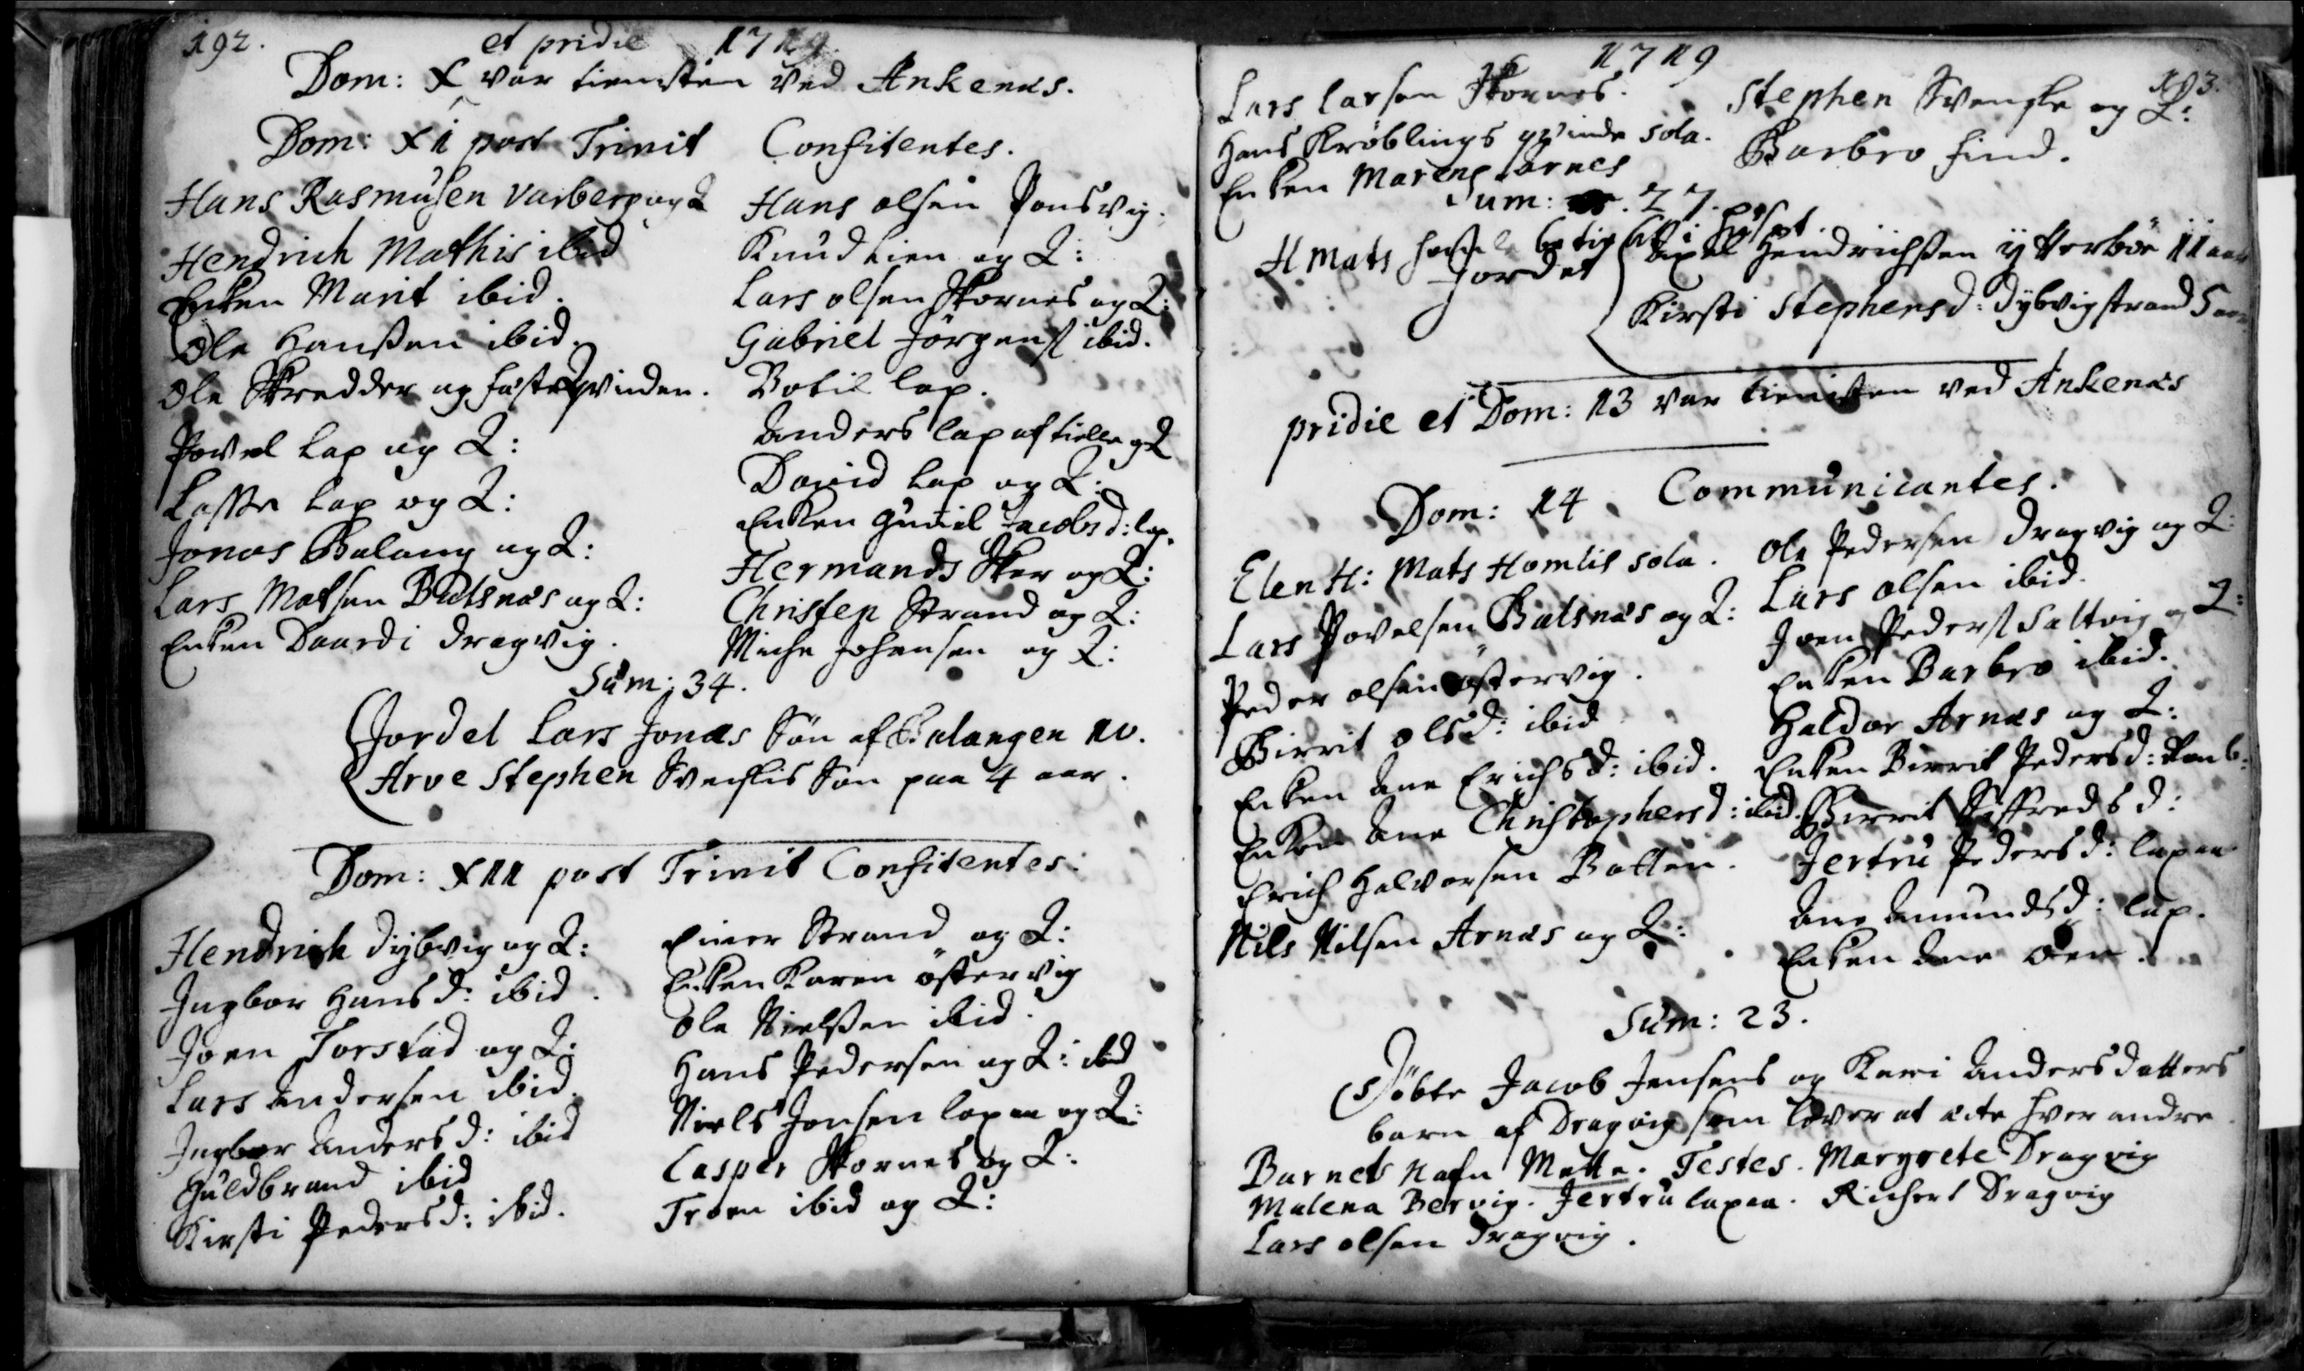 192.
et pridie 1719.
Dom: X var tienesten ved Ankenæs.
Dom: XI post Trinit Confitentes.
Hans Rasmusen Varberg og Q
Hendrich Mathis ibid
Enken Marit ibid.
Ole Hanssen ibid.
Ole Skredder og fæsteqvinden.
Povel Lap og Q:
Lasse Lap og Q:
Jonas Balang og Q:
Lars Matsen Balsnæs og Q:
Enken Daardi Dragvig.
Hans Olsen Ponsvig.
Knud Lien og Q:
Lars Olsen Skornes og Q:
Gabriel Jörgens ibid.
Botil lap.
Anders lap af og Q
David lap og Q:
Enken Gunil Jacobsd: lap.
Hermands og Q:
Christen Strand og Q:
Johansen og Q:
Sum: 34.
Jordet Lars Jonæs Sön af Balangen
Arve Stephen Svenskis Sön paa 4 aar.
Dom: XII post Trinit Confitentes.
Hendrich Dybvig og Q:
Ingbor Hansd: ibid.
Joen Torstad og Q:
Lars Andersen ibid.
Ingbor Andersd: ibid
Guldbrand ibid
Kirsti Pedersd: ibid.
Einer Strand og Q:
Enken Karen Östervig
Ole Nielssen ibid.
Hans Pedersen og Q: ibid
Niels Jonsen lapen og Q:
Casper Skornes og Q:
Troen ibid og Q:
1719
193.
Lars Larsen Skornes.
Hans Kröblings qvinde sola.
Enken Maren Arnes
Stephen Svenske og Q:
Barbro find.
Sum: 27.
H Mats
Jordet Axel Hendrichsen Ytterböe 11 aar
Kirsti Stephensd: Dybvigstrand 5 aar
pridie et Dom: 13 var tienisten ved Ankenæs
Dom: 14 Communicantes.
Elen H: Mats Homlis sola.
Lars Povelsen Balsnæs og Q:
Peder Olsen Östervig.
Birrit Olsd: ibid
Enken Ane Erichsd: ibid.
Enken Ane Christophersd: ibid.
Erich Halvorsen Botten.
Nils Nilsen Arnæs og Q:
Ole Pedersen Dragvig og Q:
Lars Olsen ibid.
Joen Peders Saltvig og Q:
Enken Barbro ibid.
Haldor Arnæs og Q:
Enken Birrit Pedersd:
Birrit Siffredsd:
Jertru Pedersd: lapen
Ane Amundsd: lap.
Enken Ane Öen.
Sum: 23.
Döbte Jacob Jensens og Kari Andersdatters
barn af Dragvig som lover at ecte hver andre
Barnets Nafn Mette. Testes. Margrete Dragvig
Malena Bervig. Jertru lapen. Richert Dragvig
Lars Olsen Dragvig.